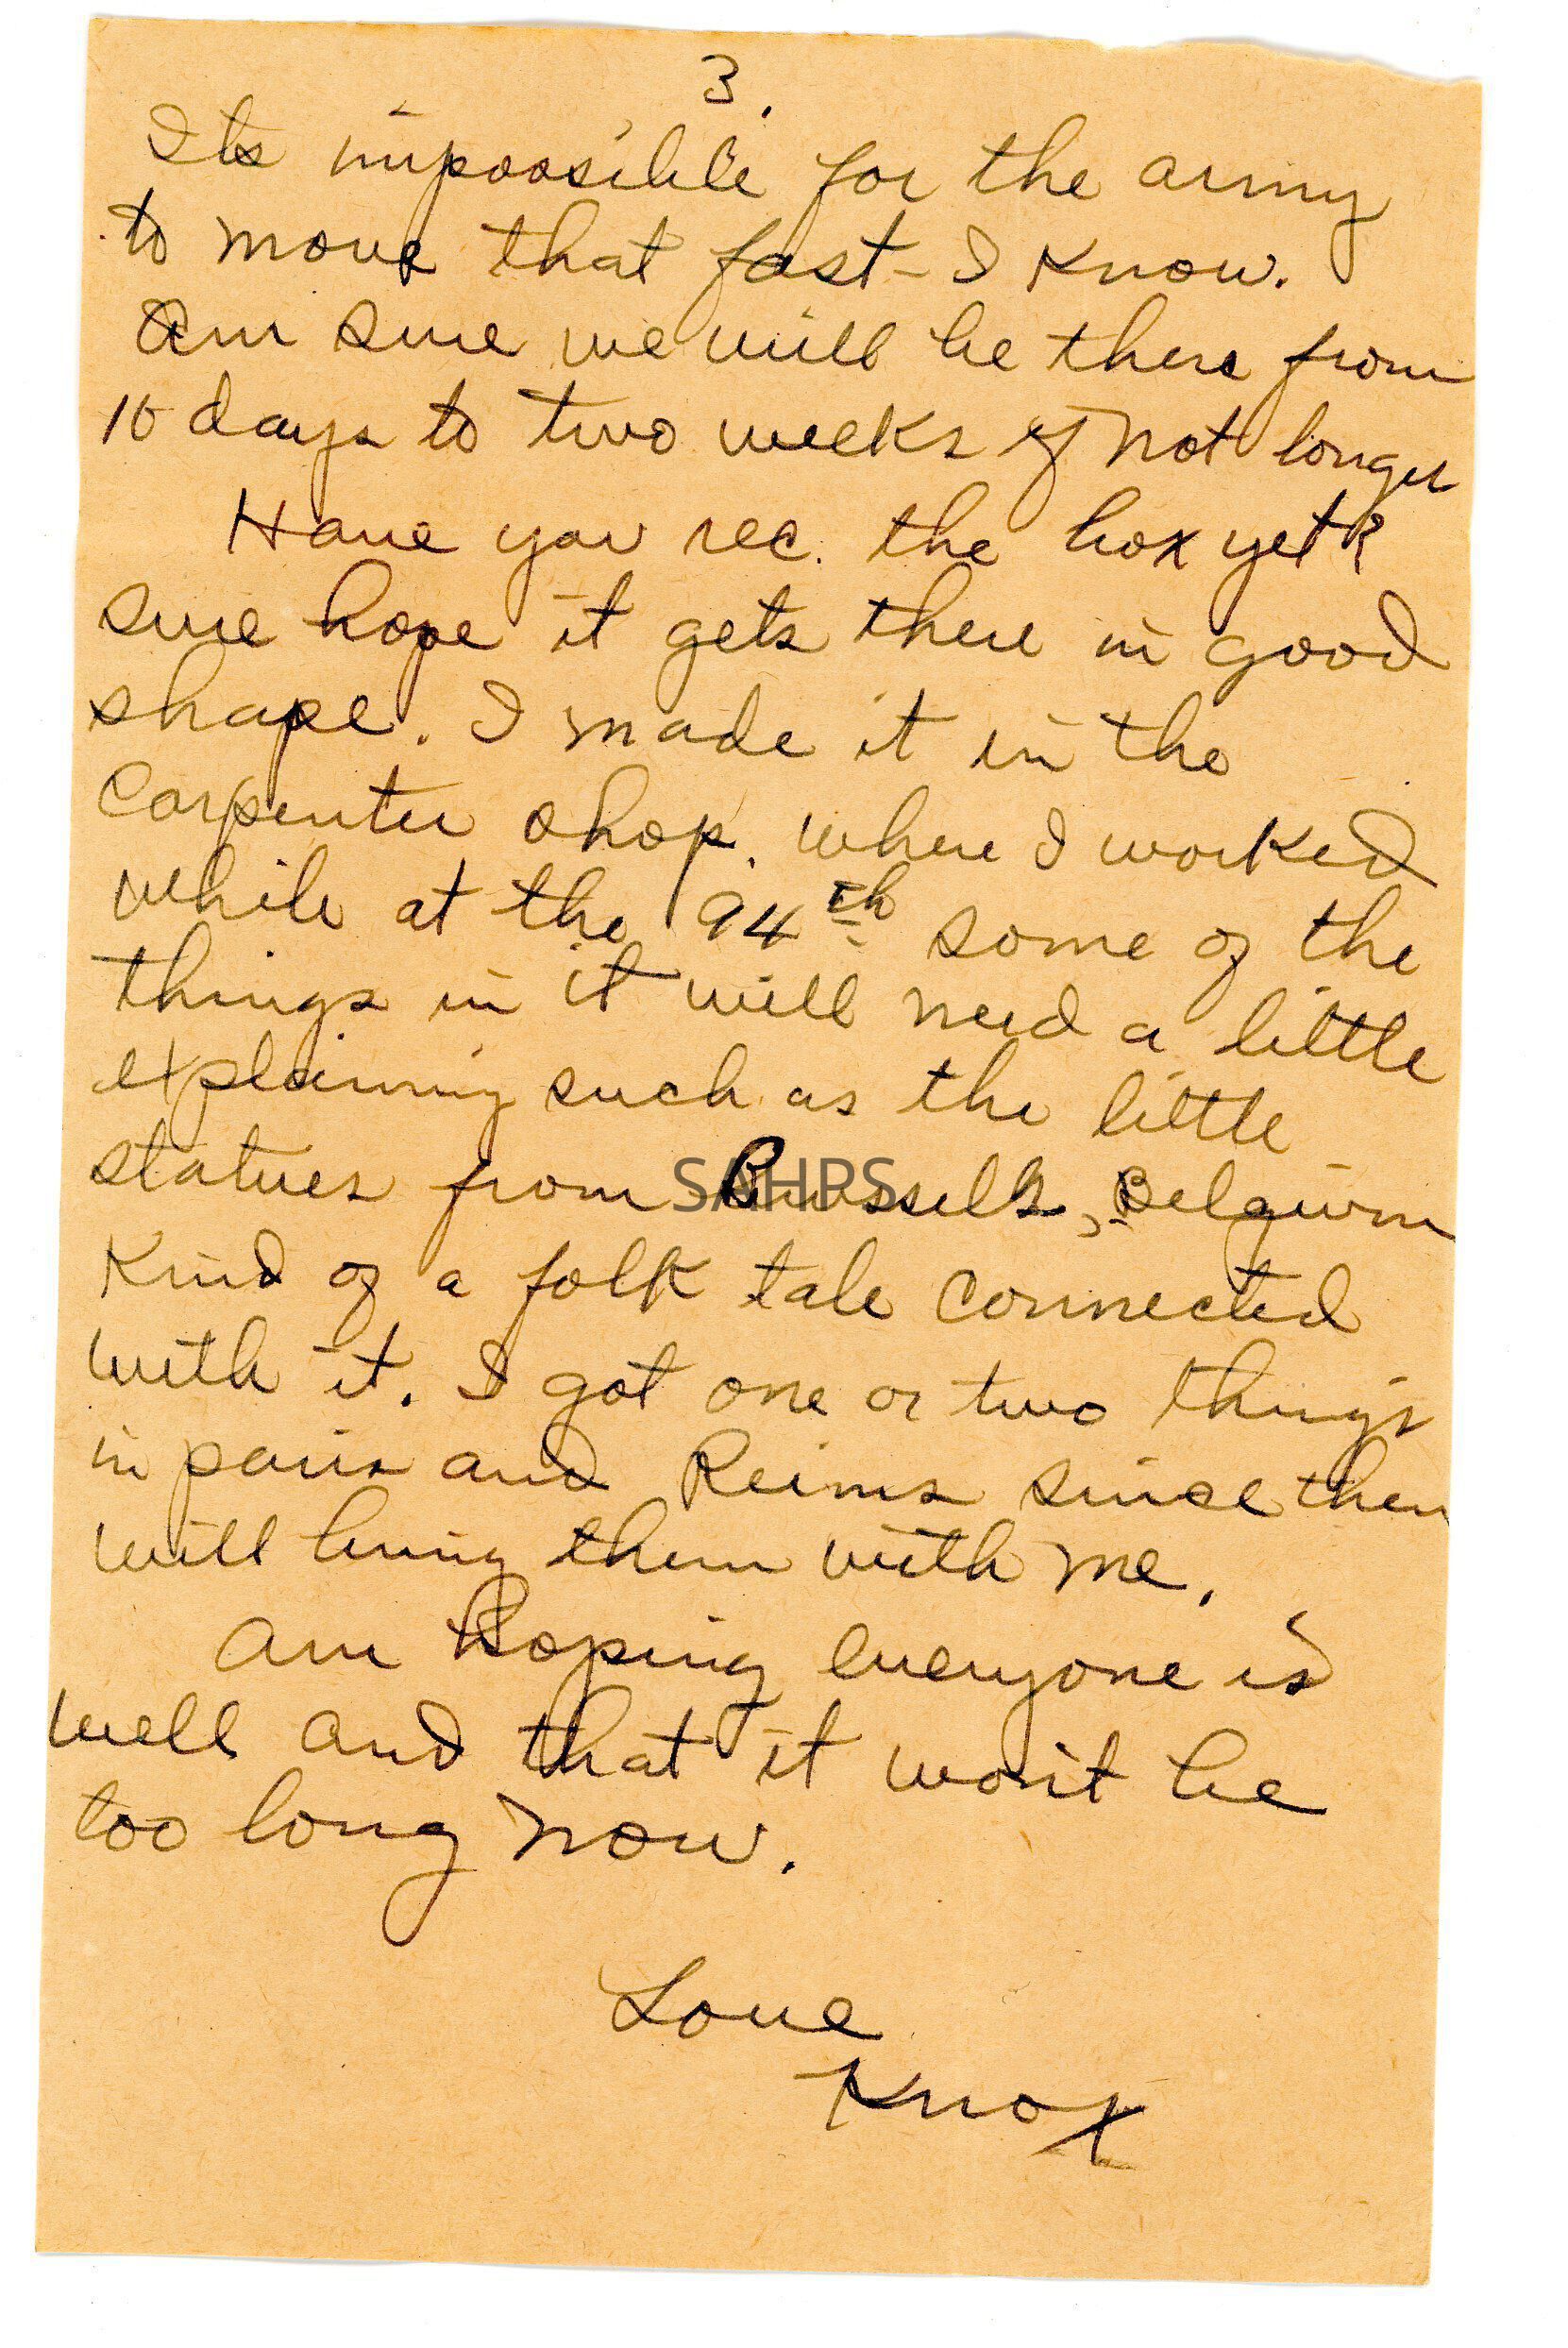 3.
Its impossible for the army
to move that fast - I know.
Am sure we will be there from
10 days to two weeks if not longer
Have you rec. the box yet?
sure hope it gets there in good
shape. I made it in the
Carpenter shop. where I worked
while at the 94th some of the
things in it will need a little
explaining such as the little
statues from Brussells, Belgium
Kind of a folk tale connected
with it. I got one or two things
in paris and Reims since then
will bring them with me.
Am hoping everyone is
well and that it won't be
too long now.
Love
Knox
SAHPS